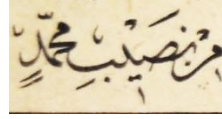 من نصيب محمد